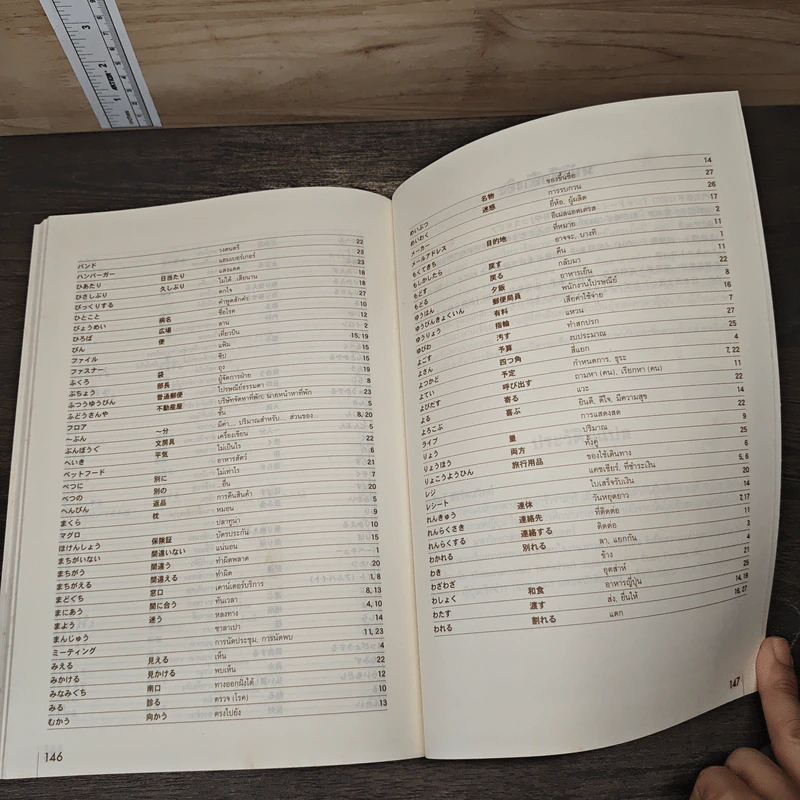 バンド วงดนตรี 22
ハンバーガー แฮมเบอร์เกอร์ 23
ひあたり 日当たり แสงแดด 23
ひさしぶり 久しぶり ไม่ได้...เสียนาน 18
びっくりする ตกใจ 18
ひとこと คำพูดสักคำ 27
びょうめい 病名 ชื่อโรค 10
ひろば 広場 ลาน 12
びん 便 เที่ยวบิน 2
ファイル แฟ้ม 15, 19
ファスナー ซิป 15
ふくろ 袋 ถุง 15
ぶちょう 部長 ผู้จัดการฝ่าย 19
ふつうゆうびん 普通郵便 ไปรษณีย์ธรรมดา 8
ふどうさんや 不動産屋 บริษัทจัดหาที่พัก, นายหน้าหาที่พัก 23
フロア ชั้น 5
～ぶん ～分 มีค่า... ปริมาณสำหรับ... ส่วนของ... 8, 20
ぶんぼうぐ 文房具 เครื่องเขียน 5
へいき 平気 ไม่เป็นไร 22
ペットフード อาหารสัตว์ 6
べつに 別に ไม่เท่าไร 21
べつの 別の ...อื่น 7
へんぴん 返品 การคืนสินค้า 20
まくら 枕 หมอน 5
マグロ ปลาทูน่า 9
ほけんしょう 保険証 บัตรประกัน 10
まちがいない 間違いない แน่นอน 15
まちがう 間違う ทำผิดพลาด 1
まちがえる 間違える ทำผิด 20
まどぐち 窓口 เคาน์เตอร์บริการ 1, 8
まにあう 間に合う ทันเวลา 8, 13
まよう 迷う หลงทาง 4, 10
まんじゅう ซาลาเปา 14
ミーティング การนัดประชุม, การนัดพบ 11, 23
みえる 見える เห็น 4
みかける 見かける พบเห็น 22
みなみぐち 南口 ทางออกฝั่งใต้ 12
みる 診る ตรวจ (โรค) 10
むかう 向かう ตรงไปยัง 13
146
めいぶつ 名物 ของขึ้นชื่อ 14
めいわく 迷惑 การรบกวน 27
メーカー ยี่ห้อ, ผู้ผลิต 26
メールアドレス อีเมลแอดเดรส 17
もくてきち 目的地 ที่หมาย 2
もしかしたら อาจจะ, บางที 11
もどす 戻す คืน 1
もどる 戻る กลับมา 11
ゆうはん 夕飯 อาหารเย็น 22
ゆうびんきょくいん 郵便局員 พนักงานไปรษณีย์ 8
ゆうりょう 有料 เสียค่าใช้จ่าย 16
ゆびわ 指輪 แหวน 7
よごす 汚す ทำสกปรก 27
よさん 予算 งบประมาณ 25
よつかど 四つ角 สี่แยก 4
よてい 予定 กำหนดการ, ธุระ 7, 22
よびだす 呼び出す ถามหา (คน), เรียกหา (คน) 11
よる 寄る แวะ 22
よろこぶ 喜ぶ ยินดี, ดีใจ, มีความสุข 14
ライブ การแสดงสด 22
りょう 量 ปริมาณ 9
りょうほう 両方 ทั้งคู่ 25
りょこうようひん 旅行用品 ของใช้เดินทาง 6
レジ แคชเชียร์, ที่ชำระเงิน 5, 6
レシート ใบเสร็จรับเงิน 20
れんきゅう 連休 วันหยุดยาว 14
れんらくさき 連絡先 ที่ติดต่อ 7, 17
れんらくする 連絡する ติดต่อ 11
わかれる 別れる ลา, แยกกัน 3
わき ข้าง 4
わざわざ อุตส่าห์ 21
わしょく 和食 อาหารญี่ปุ่น 25
わたす 渡す ส่ง, ยื่นให้ 14, 19
われる 割れる แตก 16, 27
147